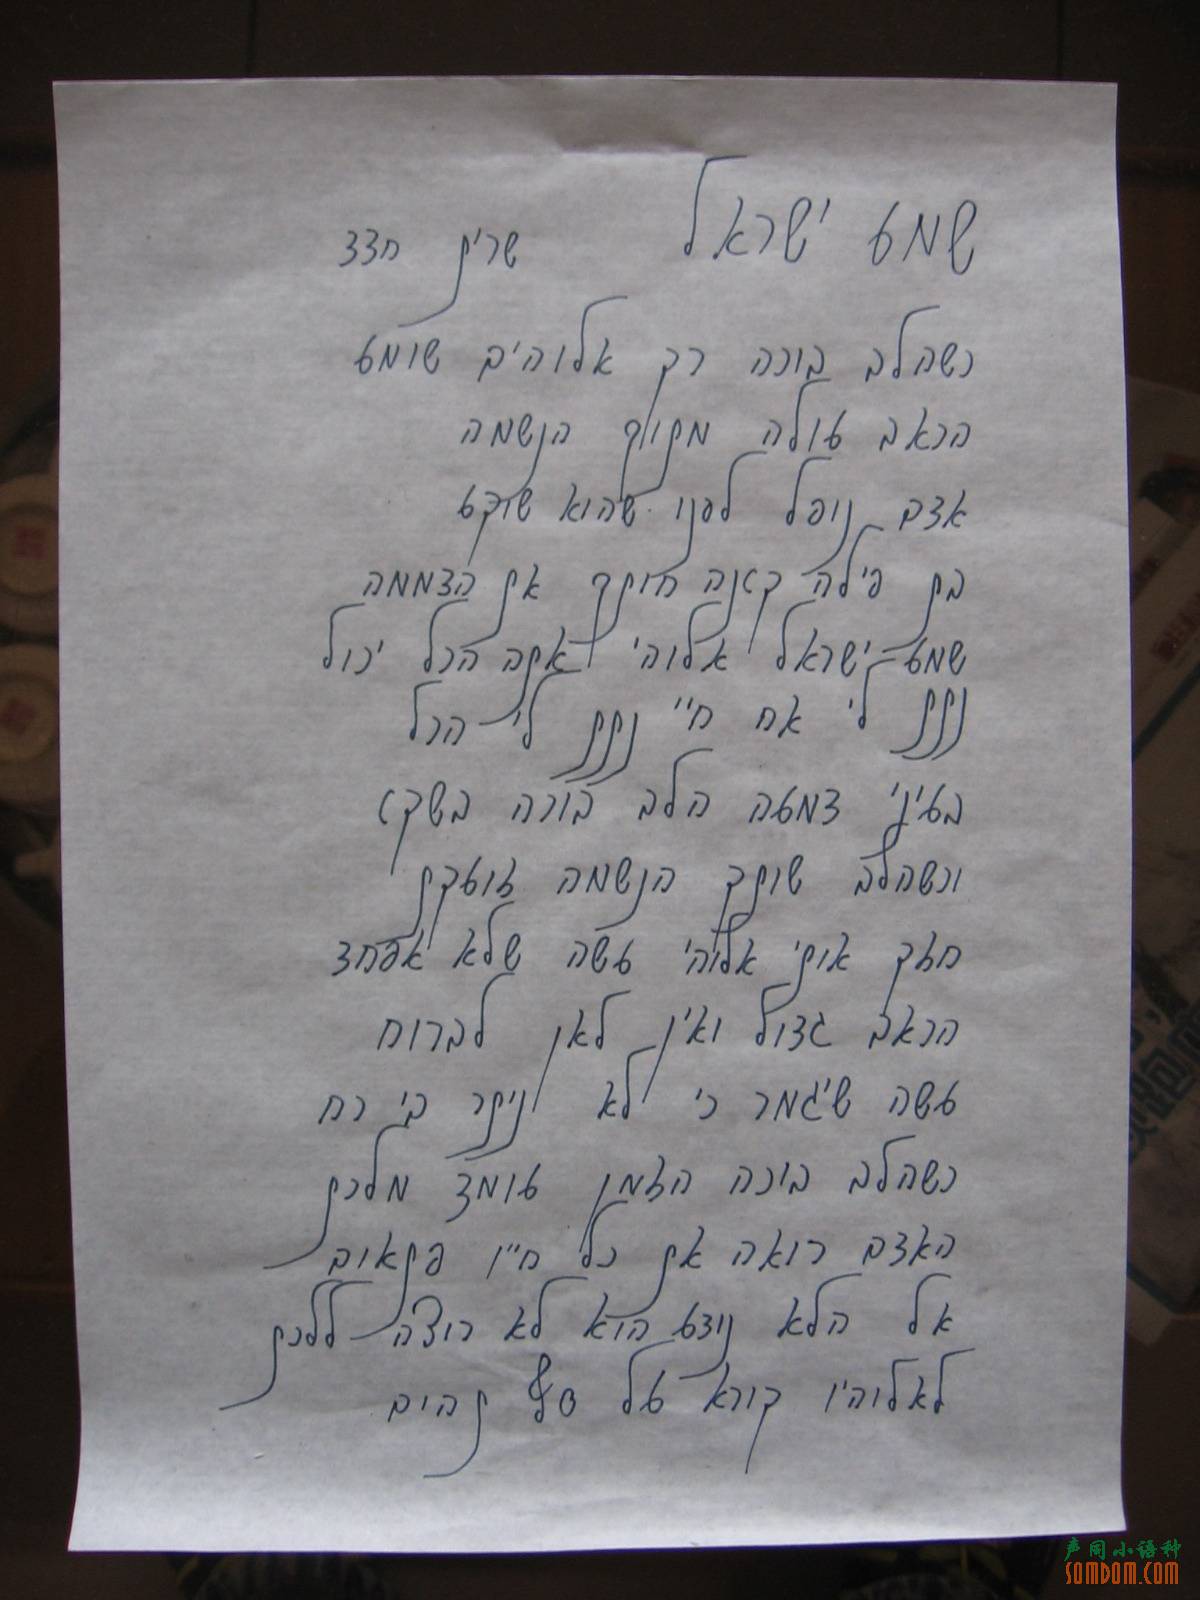 שמע ישראל שרית חדד
כשהלב בוכה רק אלוהים שומע
הכאב עולה מתוך הנשמה
אדם נופל לפני שהוא שוקע
בתפילה קטנה חותך את הדממה
שמע ישראל אלוהי אתה הכל יכול
נתת לי את חיי נתת לי הכל
בעיני דמעה הלב בוכה בשקט
וכשהלב שותק הנשמה זועקת
חזק אותי אלוהי עשה שלא אפחד
הכאב גדול ואין לאן לברוח
עשה שיגמר כי לא ניתר בי כח
כשהלב בוכה הזמן עומד מלכת
האדם רואה את כל חייו פתאום
אל הלא נודע הוא לא רוצה ללכת
לאלוהיו קורא על סף תהום
声同小语种
somdom.com